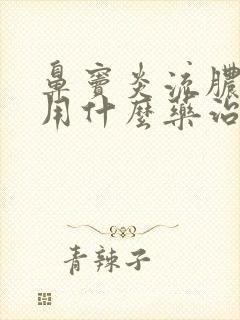 鼻窦炎流膿
用什麼藥治
青辣子